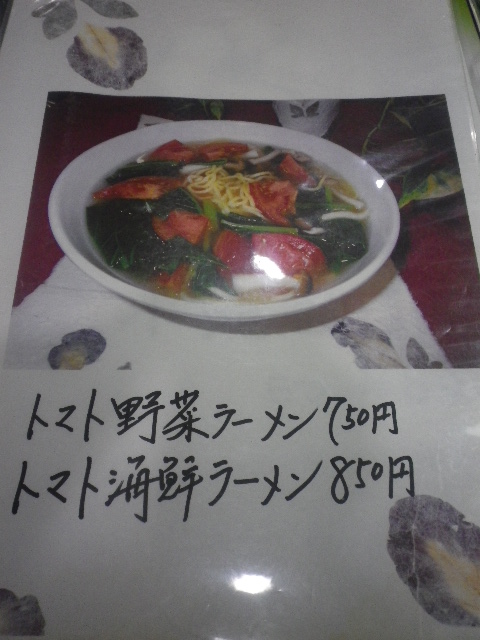 トマト野菜ラーメン750円
トマト海鮮ラーメン850円